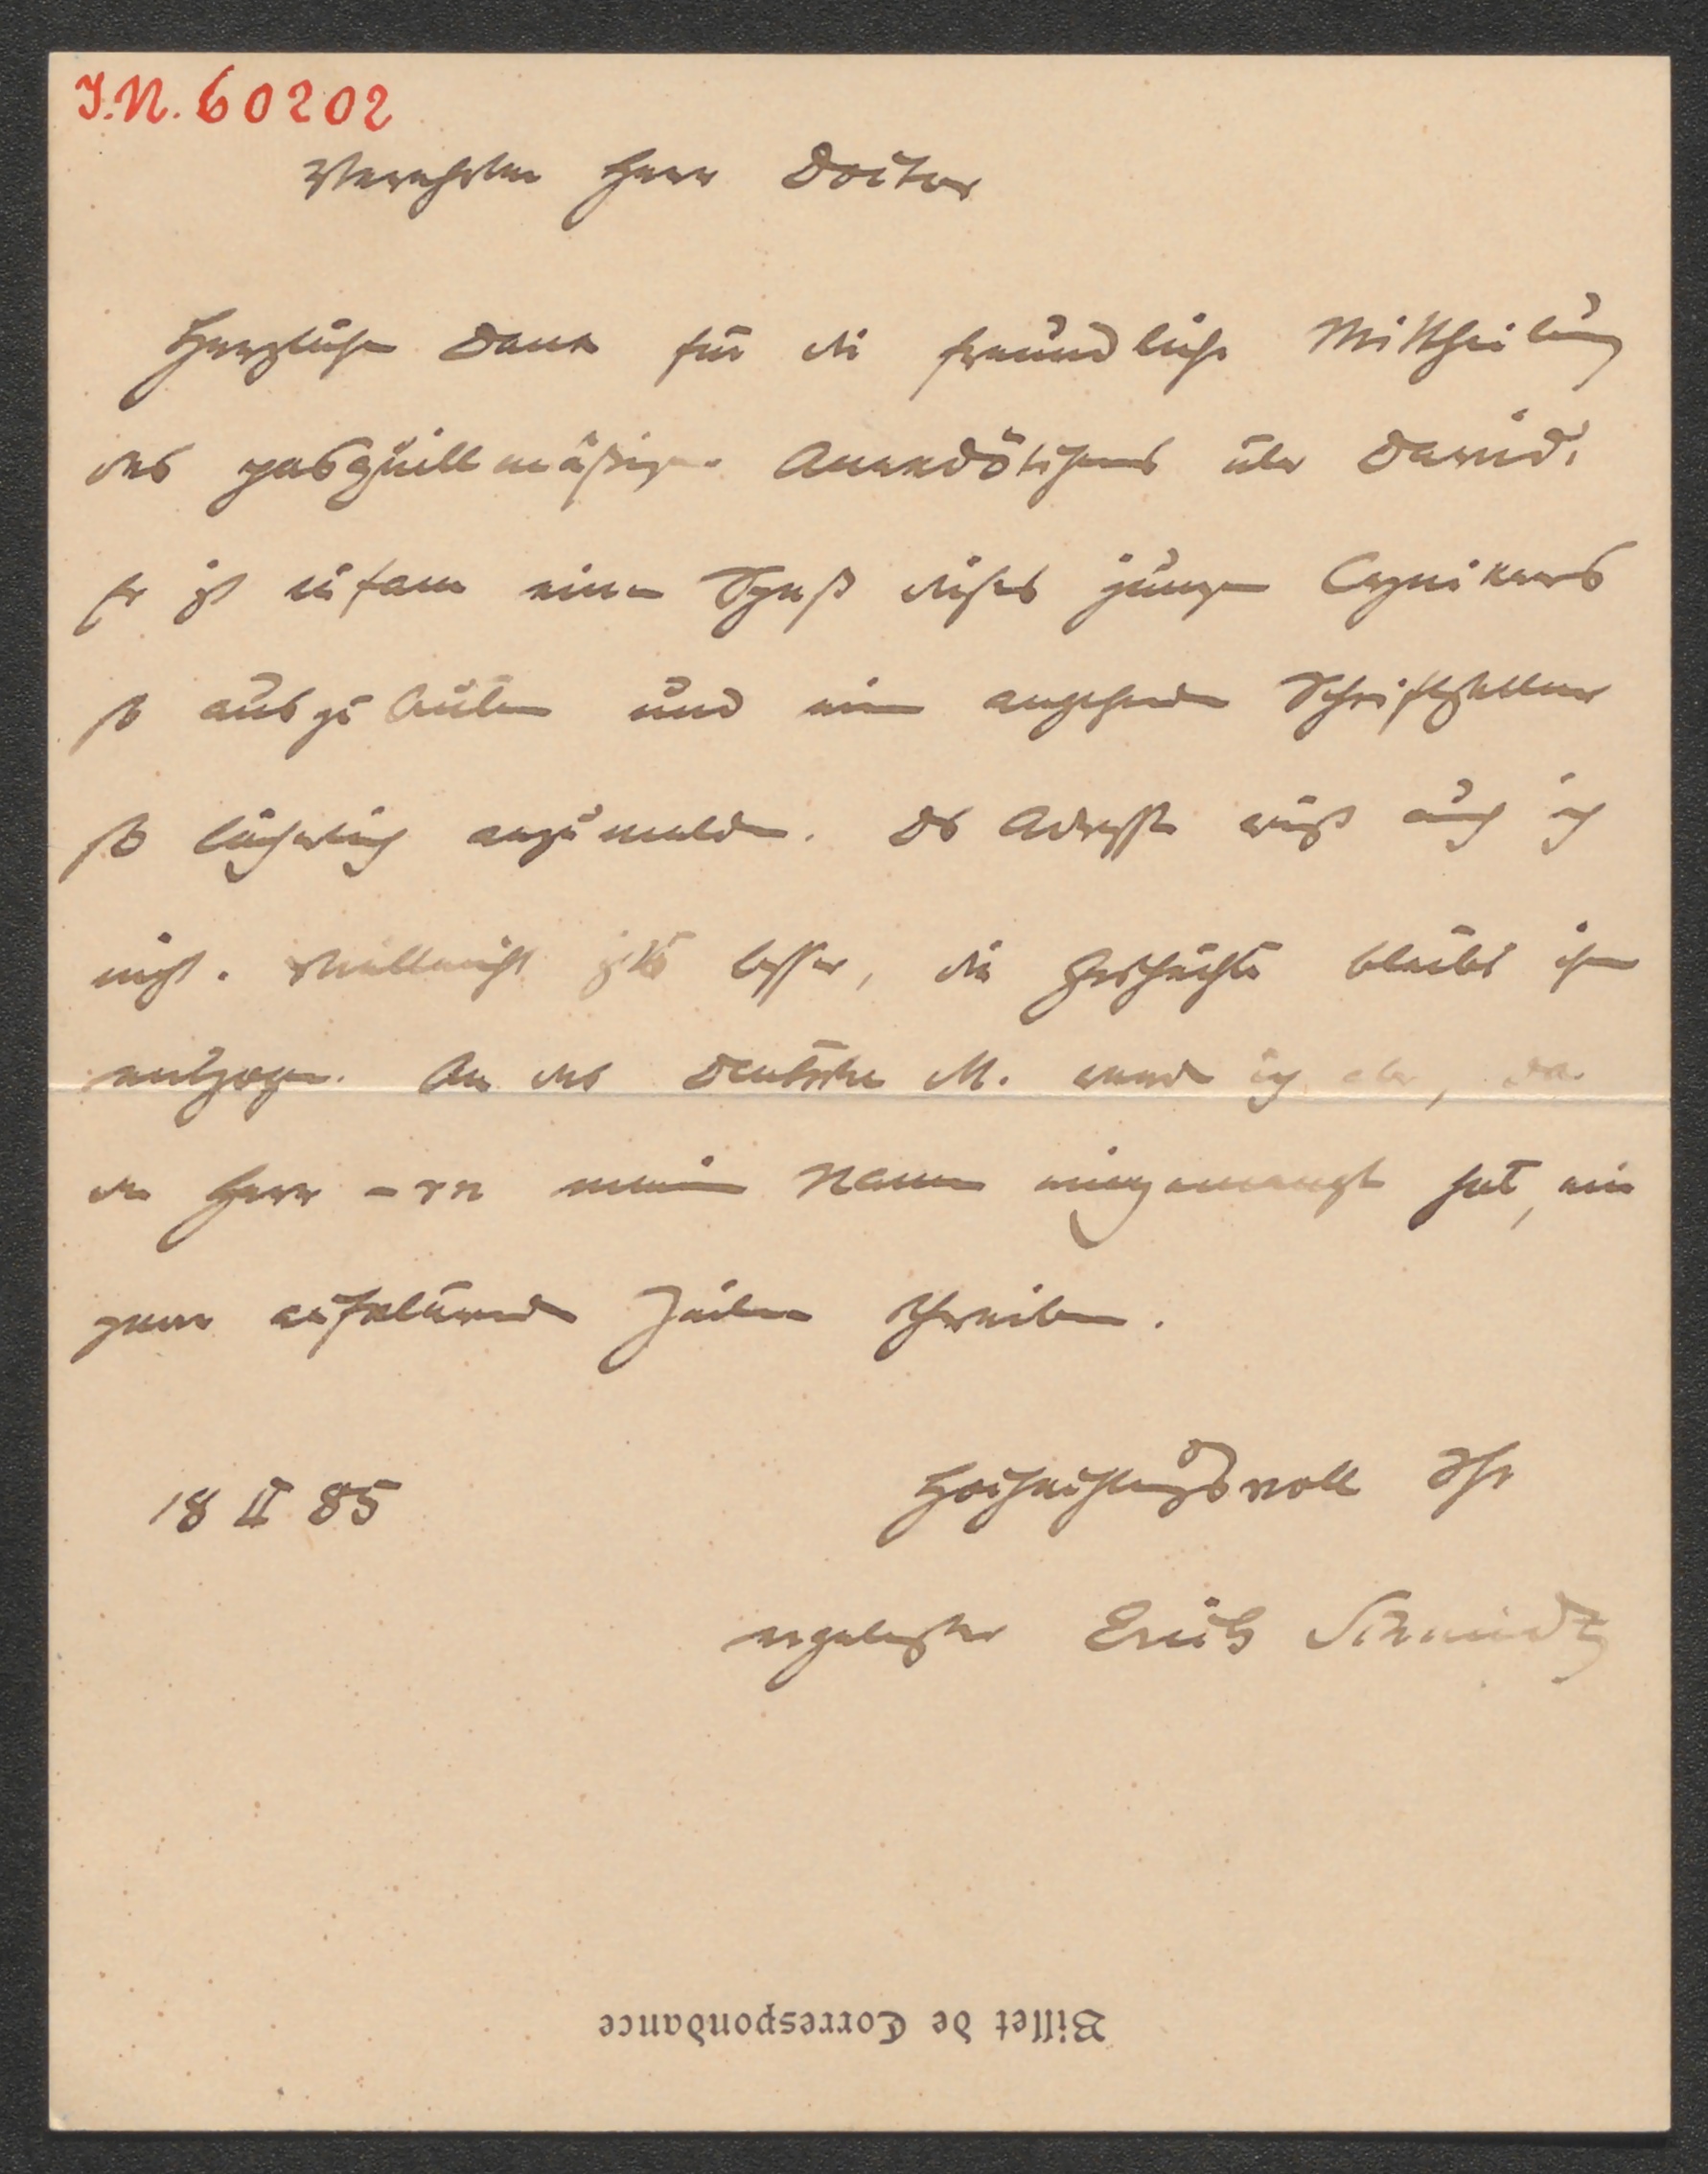 J.N. 60202
Verehrter Herr Doctor
Herzlichen Dank für die freundliche Mittheilung
des pasquillmäßigen Anekdötchens über David.
Es ist infam einen Spaß dieses jungen Cynikers
so auszubeuten und einen angehenden Schriftsteller
so lächerlich anzumelden. Ds Adresse weiß auch ich
nicht. Vielleicht ists besser, die Geschichte bleibt ihm
entzogen. An das Deutsche M. werde ich aber, da
der Herr –rn meinen Namen eingemengt hat, ein
paar aufklärende Zeilen schreiben.
18 II 85
Hochachtungsvoll Ihr
ergebenster Erich Schmidt
Billet de Correspondance